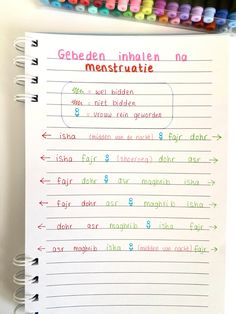 Gebeden inhalen na
menstruatie
= wel bidden
= niet bidden
= vrouw rein geworden
isha (midden van de nacht) fajr dohr
isha fajr (shoeroeq) dohr asr
fajr dohr asr maghrib isha
fajr dohr asr maghrib isha
dohr asr maghrib isha fajr
asr maghrib isha (midden vd nacht) fajr